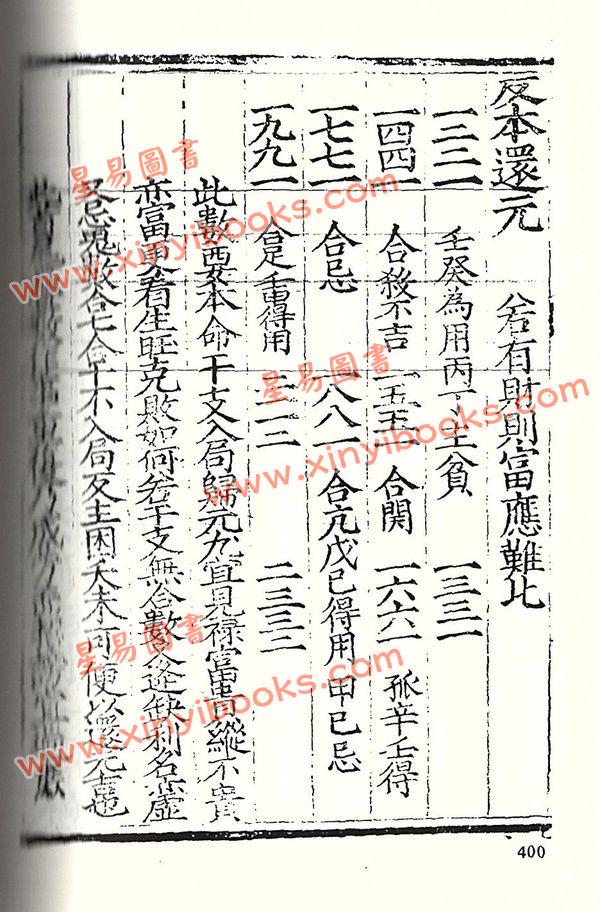 反本還元 若有財則富應難比
一二二一 壬癸為用丙丁主貧 一三三一
一四四一 合殺不吉 一五五一 合関 一六六一 孤辛壬得
一七七一 合忌 一八八一 合亢戊已得用甲已忌
一九九一 合足重得用
此數要本命干支入局歸元尤宜見禄富貴縱不貴
亦富更看生旺克敗如何若干支無合數缺利名虛
合干不入局反主困夭未可便以還元吉也
400
星易圖書
www.xinyibooks.com
星易圖書
www.xinyibooks.com
星易圖書
www.xinyibooks.com